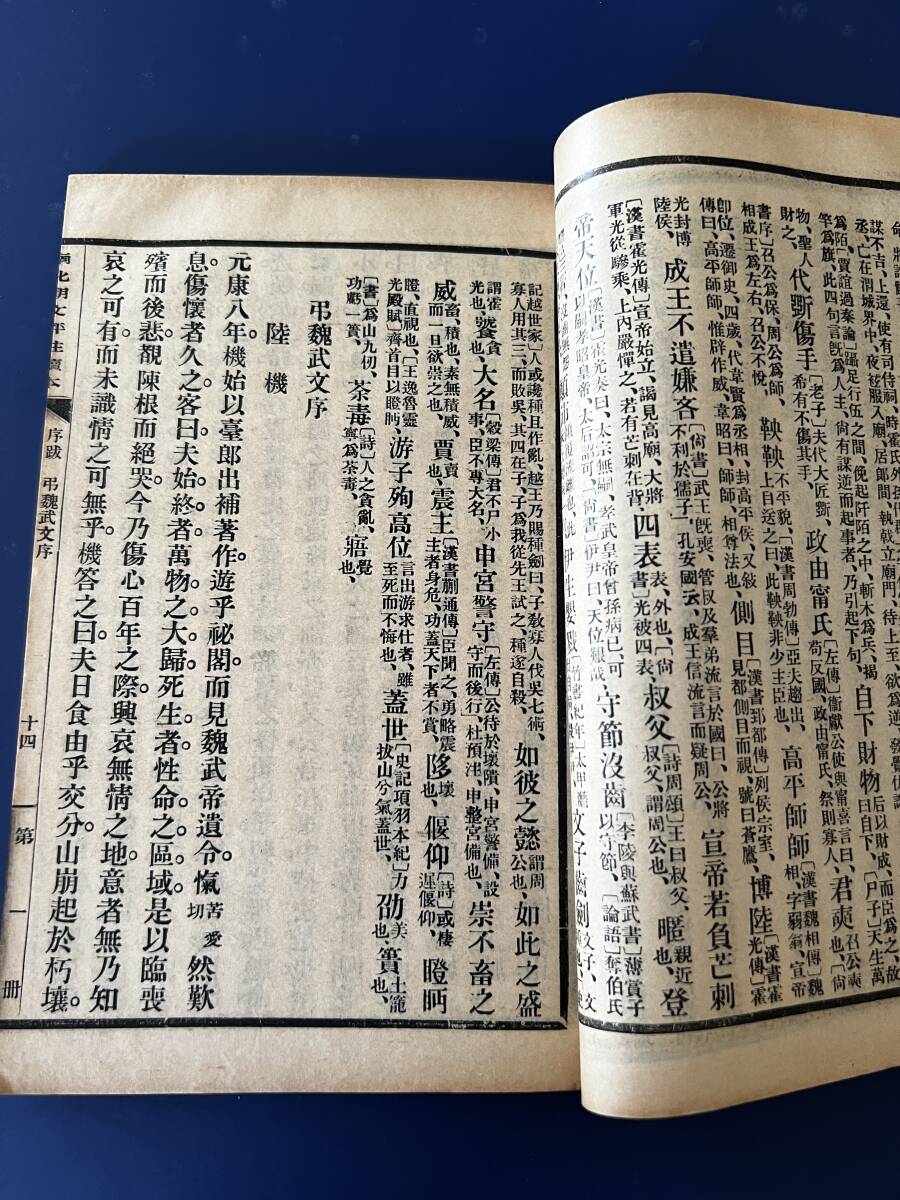 謀不吉、上還、使有司侍祠、時霍氏外孫
丞、亡在渭城界中、夜袨服入廟、居郎間、執戟立廟門、待上至、欲爲
爲陌、〔賈誼過秦論〕躡足行伍之中、俛起阡陌之中、斬木爲兵、揭
竿爲旗、此四句言旣爲人主、尙有謀逆而起事者、乃引起下句、自下財物后以財成、而臣爲之、故〔尸子〕天生萬
物、聖人財之、代斲傷手〔老子〕夫代大匠斲、希有不傷其手、政由甯氏〔左傳〕衞獻公使與甯喜言曰、苟反國、政由甯氏、祭則寡人、君奭召公奭也、〔尙
書序〕召公爲保、周公爲師、相成王爲左右、召公不悅、鞅鞅不平貌、〔漢書周勃傳〕亞夫趨出、上自送之曰、此鞅鞅非少主臣也、高平師師〔漢書魏相傳〕魏相、字弱翁、宣帝
卽位、遷御史、四歲、代韋賢爲丞相、封高平侯、又敍傳曰、高平師師、惟辟作威、韋昭曰、師師、相尊法也、側目〔漢書郅都傳〕列侯宗室、見都側目而視、號曰蒼鷹、博陸〔漢書霍光傳〕霍
光封博陸侯、成王不遣嫌吝〔尙書〕武王旣喪、管叔及羣弟流言於國曰、公將不利於孺子、孔安國云、成王信流言而疑周公、宣帝若負芒刺
〔漢書霍光傳〕宣帝始立、謁見高廟、大將軍光從驂乘、上內嚴憚之、若有芒刺在背、四表表、外也、〔尙書〕光被四表、叔父〔詩周頌〕王曰叔父、叔父、謂周公也、暱親近也、登
帝天位〔漢書〕霍光奏曰、太宗無嗣、孝武皇帝曾孫病已、可以嗣孝昭皇帝、太后詔可、〔尙書〕伊尹曰、天位艱哉、守節沒齒〔李陵與蘇武書〕薄賞子以守節、〔論語〕奪伯氏
記越世家〕人或讒種且作亂、越王乃賜種劍曰、子敎寡人伐吳七術、寡人用其三、而敗吳、其四在子、子爲我從先王試之、種遂自殺、如彼之懿謂周公也、如此之盛
謂霍光也、饕貪也、大名〔穀梁傳〕君不尸小事、臣不專大名、申宮警守〔左傳〕公待於壞隤、申宮警備、設守而後行、〔杜預注〕申、整宮備也、崇不畜之
威畜、積也、素無積威、而一旦欲崇之也、賈賣也、震主〔漢書蒯通傳〕臣聞之、勇略震主者身危、功蓋天下者不賞、陊壞也、偃仰〔詩〕或棲遲偃仰、瞪眄
瞪、直視也、〔王逸魯靈光殿賦〕齊首目以瞪眄、游子殉高位言出游求仕者、雖至死而不悔也、蓋世〔史記項羽本紀〕力拔山兮氣蓋世、劭美也、簣土籠也、
〔書〕爲山九仞、功虧一簣、荼毒〔詩〕人之貪亂、寧爲荼毒、寤覺也、
弔魏武文序
陸機
元康八年。機始以臺郎出補著作。遊乎祕閣。而見魏武帝遺令。愾苦愛切然歎
息。傷懷者久之。客曰。夫始終者。萬物之大歸。死生者。性命之區域。是以臨喪
殯而後悲。覩陳根而絕哭。今乃傷心百年之際。興哀無情之地。意者無乃知
哀之可有。而未識情之可無乎。機答之曰。夫日食由乎交分。山崩起於朽壤。
序跋 弔魏武文序
十四
第一冊